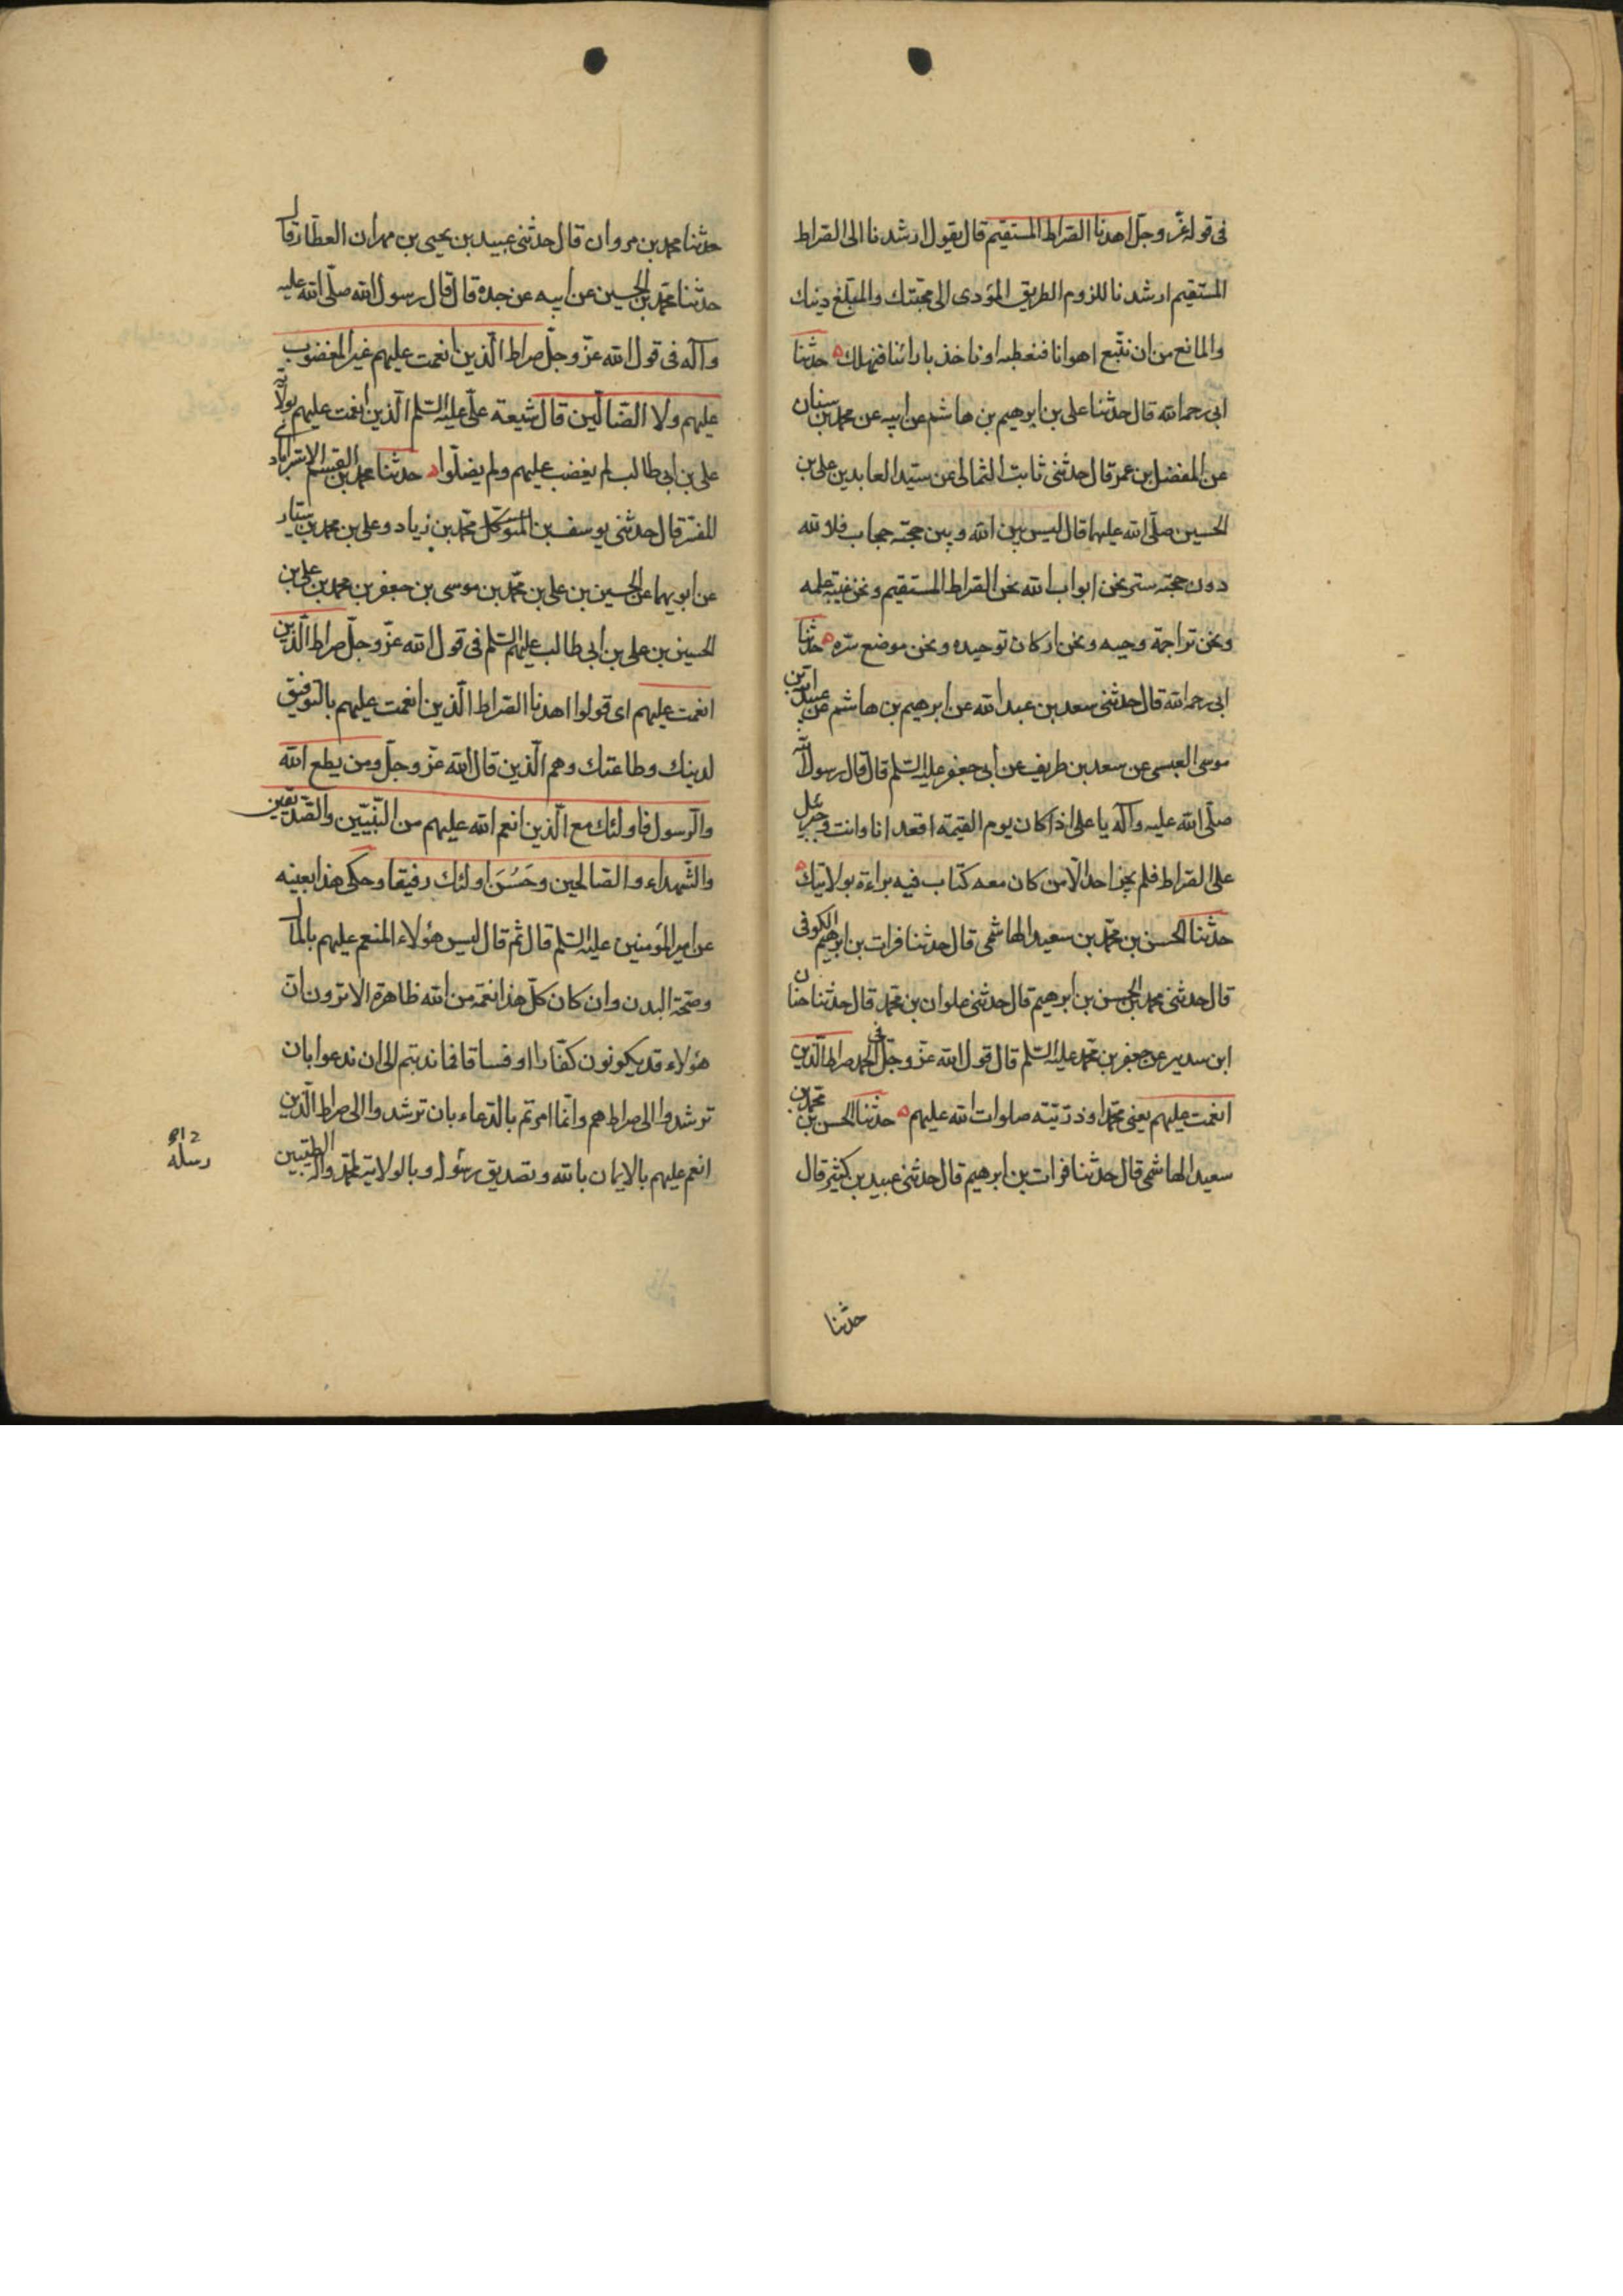 فى قوله عزّ وجلّ اهدنا الصّراط المستقيم قال يقول ارشدنا الى الصّراط
المستقيم ارشدنا للزوم الطريق المؤدى الى محبّتك والمبلّغ دينك
والمانع من ان نتّبع اهوانا فنعطب او ناخذ بارائنا فنهلك ه حدثنا
ابى رحمه الله قال حدثنا على بن ابرهيم بن هاشم عن ابيه عن محمد بن سنان
عن المفضل بن عمر قال حدثنى ثابت الثمالى عن سيّد العابدين على بن
الحسين صلّى الله عليهما قال ليس بين الله وبين حجته حجاب فلا لله
دون حجته ستر نحن ابواب الله نحن الصّراط المستقيم ونحن عيبة علمه
ونحن تراجمة وحيه ونحن اركان توحيده ونحن موضع سرّه ه حدثنا
ابى رحمه الله قال حدثنى سعد بن عبد الله عن ابرهيم بن هاشم عن عبيد الله بن
موسى العبسى عن سعد بن طريف عن ابى جعفر عليه السّلم قال قال رسول الله
صلّى الله عليه وآله يا على اذا كان يوم القيمة اقعد انا وانت وجبرئيل
على الصّراط فلم يجز احد الّا من كان معه كتاب فيه براءة بولايتك ه
حدّثنا الحسن بن محمّد بن سعيد الهاشمى قال حدثنا فرات بن ابرهيم الكوفى
قال حدثنى محمد بن الحسن بن ابرهيم قال حدثنى علوان بن محمّد قال حدثنا حنان
ابن سدير عن جعفر بن محمّد عليه السّلم قال قول الله عزّ وجلّ فى الحمد صراط الّذين
انعمت عليهم يعنى محمّدا وذرّيّته صلوات الله عليهم ه حدّثنا الحسن بن محمّد بن
سعيد الهاشمى قال حدثنا فرات بن ابرهيم قال حدثنى عبيد بن كثير قال
حدثنا
حدثنا محمد بن مروان قال حدثنى عبيد بن يحيى بن مهران العطّار قال
حدّثنا محمّد بن الحسين عن ابيه عن جده قال قال رسول الله صلّى الله عليه
وآله فى قول الله عزّ وجلّ صراط الّذين انعمت عليهم غير المغضوب
عليهم ولا الضّالّين قال شيعة علىّ عليه السّلم الّذين انعمت عليهم بولاية
على بن ابى طالب لم يغضب عليهم ولم يضلّوا ه حدثنا محمد بن القسم الاسترابادى
المفسّر قال حدثنى يوسف بن المتوكل محمّد بن زياد وعلى بن محمد بن سيّار
عن ابويهما عن الحسين بن على بن محمّد بن موسى بن جعفر بن محمد بن على بن
الحسين بن على بن ابى طالب عليهم السّلم فى قول الله عزّ وجلّ صراط الّذين
انعمت عليهم اى قولوا اهدنا الصّراط الّذين انعمت عليهم بالتوفيق
لدينك وطاعتك وهم الّذين قال الله عزّ وجلّ ومن يطع الله
والرّسول فاولئك مع الّذين انعم الله عليهم من النّبيّين والصّدّيقين
والشّهداء والصّالحين وحَسُنَ اولئك رفيقا وحكى هذا بعينه
عن امير المؤمنين عليه السّلم قال ثم قال ليس هؤلاء المنعم عليهم بالمال
وصحّة البدن وان كان كلّ هذا نعمة من الله ظاهرة الا ترون انّ
هؤلاء قد يكونون كفّارا او فسّاقا فما ندبتم الى ان تدعوا بان
ترشدوا الى صراطهم وانّما امرتم بالدّعاء بان ترشدوا الى صراط الّذين
انعم عليهم بالايمان بالله وتصديق رسوله وبالولاية لمحمّد وآله الطيّبين
رسله